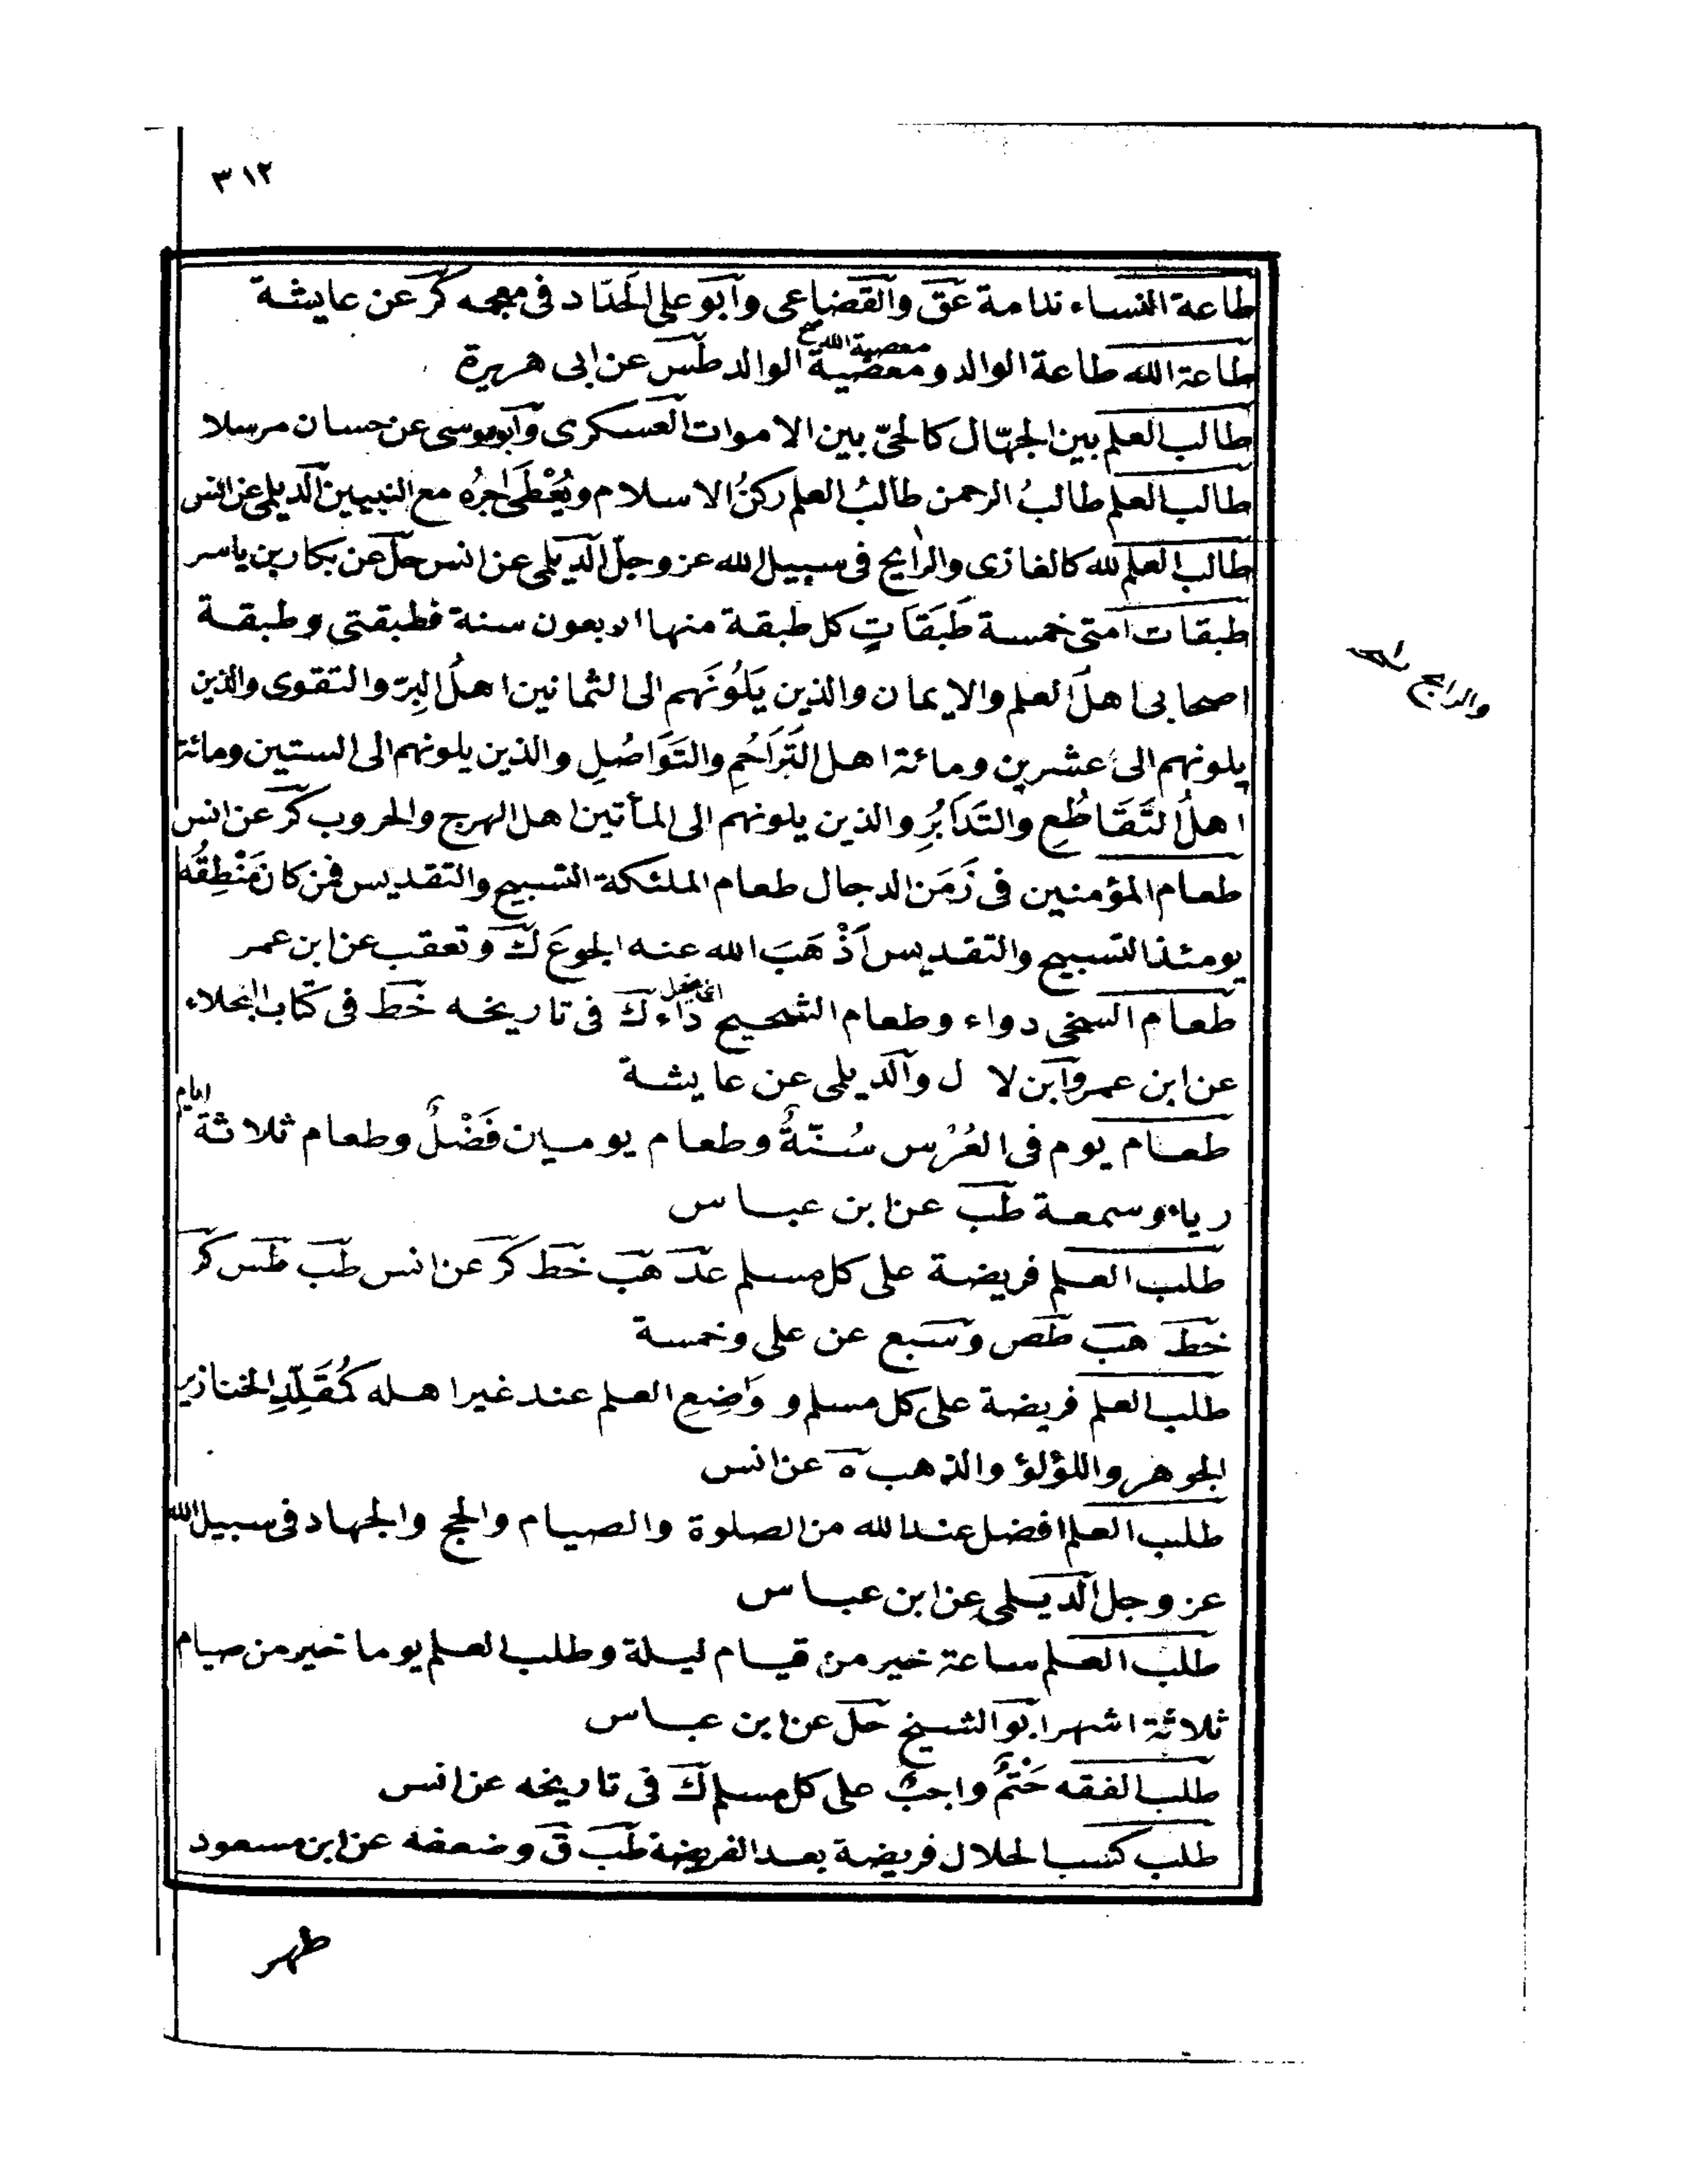 ٣١٢
طاعة النساء ندامة عق والقضاعى وابو على الحداد فى معجمه كر عن عايشة
طاعة الله طاعة الوالد ومعصية الله معصية الوالد طس عن ابى هريرة
طالب العلم بين الجهّال كالحىّ بين الاموات العسكرى وابو موسى عن حسان مرسلا
طالب العلم طالبُ الرحمن طالبُ العلم ركنُ الاسلام ويُعْطَى اجرُه مع النبيين الديلمى عن انس
طالب العلم لله كالغازى والرايح فى سبيل الله عز وجلّ الديلمى عن انس حل عن بكار بن ياسر
والرايح
طبقات امتى خمسة طَبَقَاتٍ كل طبقة منها اربعون سنة فطبقتى وطبقة
اصحابى اهلُ العلم والايمان والذين يَلُونَهم الى الثمانين اهلُ البِرّ والتقوى والذين
يلونهم الى عشرين ومائة اهل التَّرَاحُمِ والتَوَاصُلِ والذين يلونهم الى الستين ومائة
اهلُ التَّقَاطُعِ والتَدَابُرِ والذين يلونهم الى المأتين اهل الهرج والحروب كر عن انس
طعام المؤمنين فى زَمَن الدجال طعام الملئكة التسبيح والتقديس فمن كان مَنْطِقُه
يومئذ التسبيح والتقديس اَذْهَبَ الله عنه الجوعَ ك وتعقب عن ابن عمر
طعام السخى دواء وطعام الشحيح داء ك فى تاريخه خط فى كتاب البخلاء
عن ابن عمر وابن لال والديلمى عن عايشة
طعام يوم فى العُرْس سُنّةٌ وطعام يومين فَضْلٌ وطعام ثلاثة ايام
رياء وسمعة طب عن ابن عباس
طلب العلم فريضة على كل مسلم عد هب خط كر عن انس طب طس كر
خط هب طص وسبع عن على وخمسة
طلب العلم فريضة على كل مسلم و وَاضِع العلم عند غير اهله كمُقَلِّدِ الخنازير
الجوهر واللؤلؤ والذهب ه عن انس
طلب العلم افضل عند الله من الصلوة والصيام والحج والجهاد فى سبيل الله
عز وجل الديلمى عن ابن عباس
طلب العلم ساعة خير من قيام ليلة وطلب العلم يوما خير من صيام
ثلاثة اشهر ابو الشيخ حل عن ابن عباس
طلب الفقه حَتْمٌ واجبٌ على كل مسلم ك فى تاريخه عن انس
طلب كسب الحلال فريضة بعد الفريضة طب ق وضعفه عن ابن مسعود
طهر